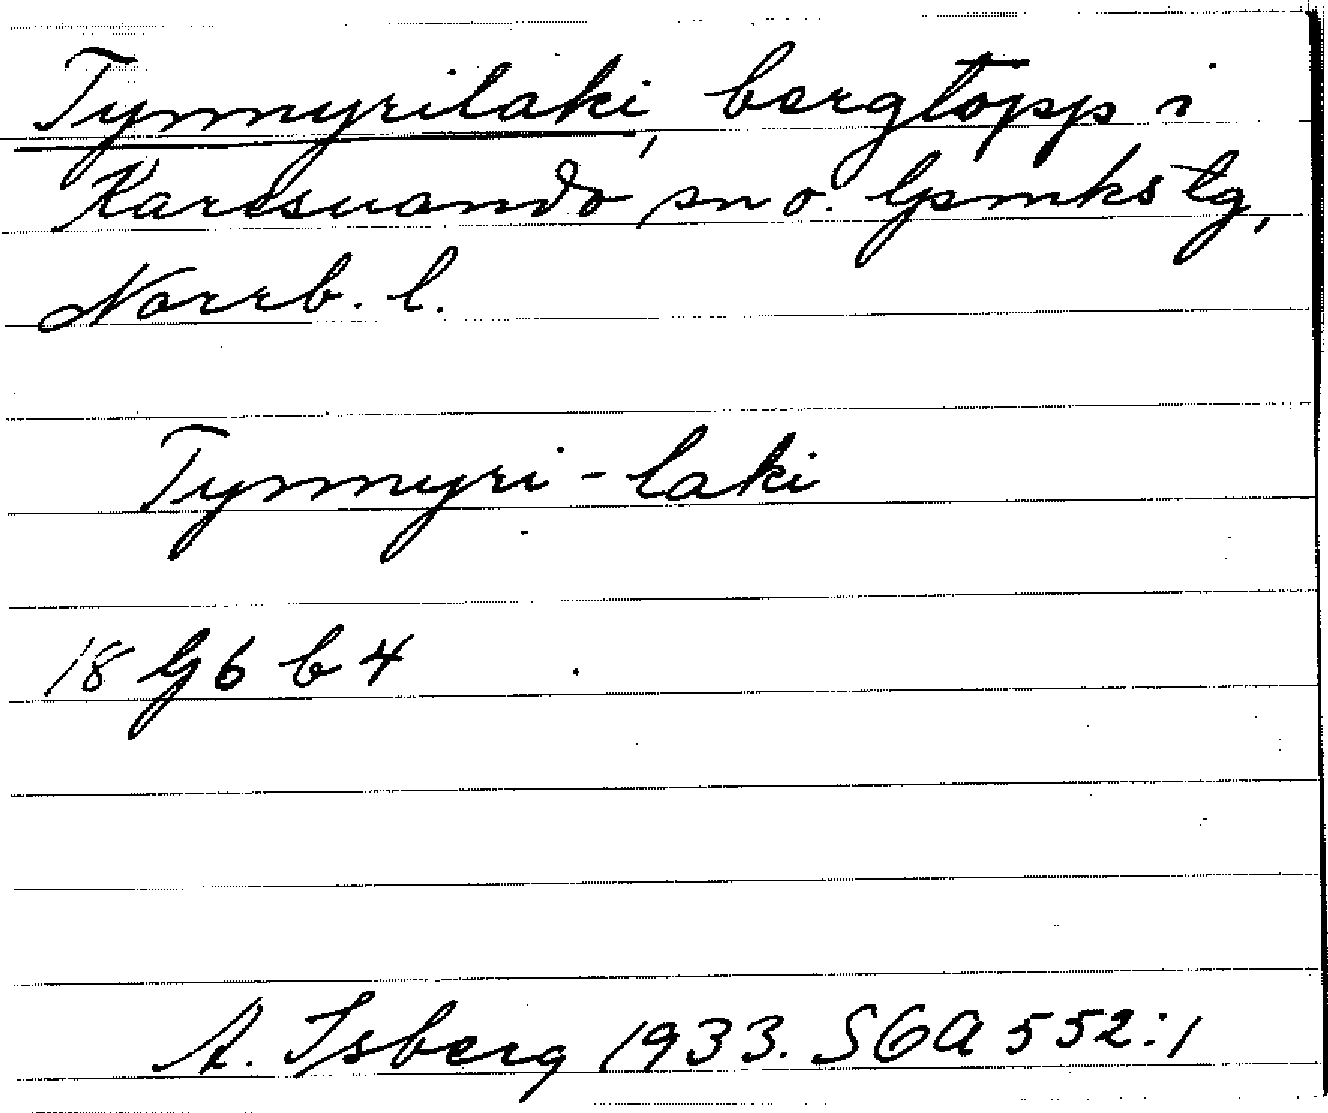 Tynnyrilaki, bergtopp i
Karesuando sn o. lpmkstg,
Norrb. l.
Tynnyri-laki
18 G 6 b 4
A. Isberg 1933. SGA 552:1